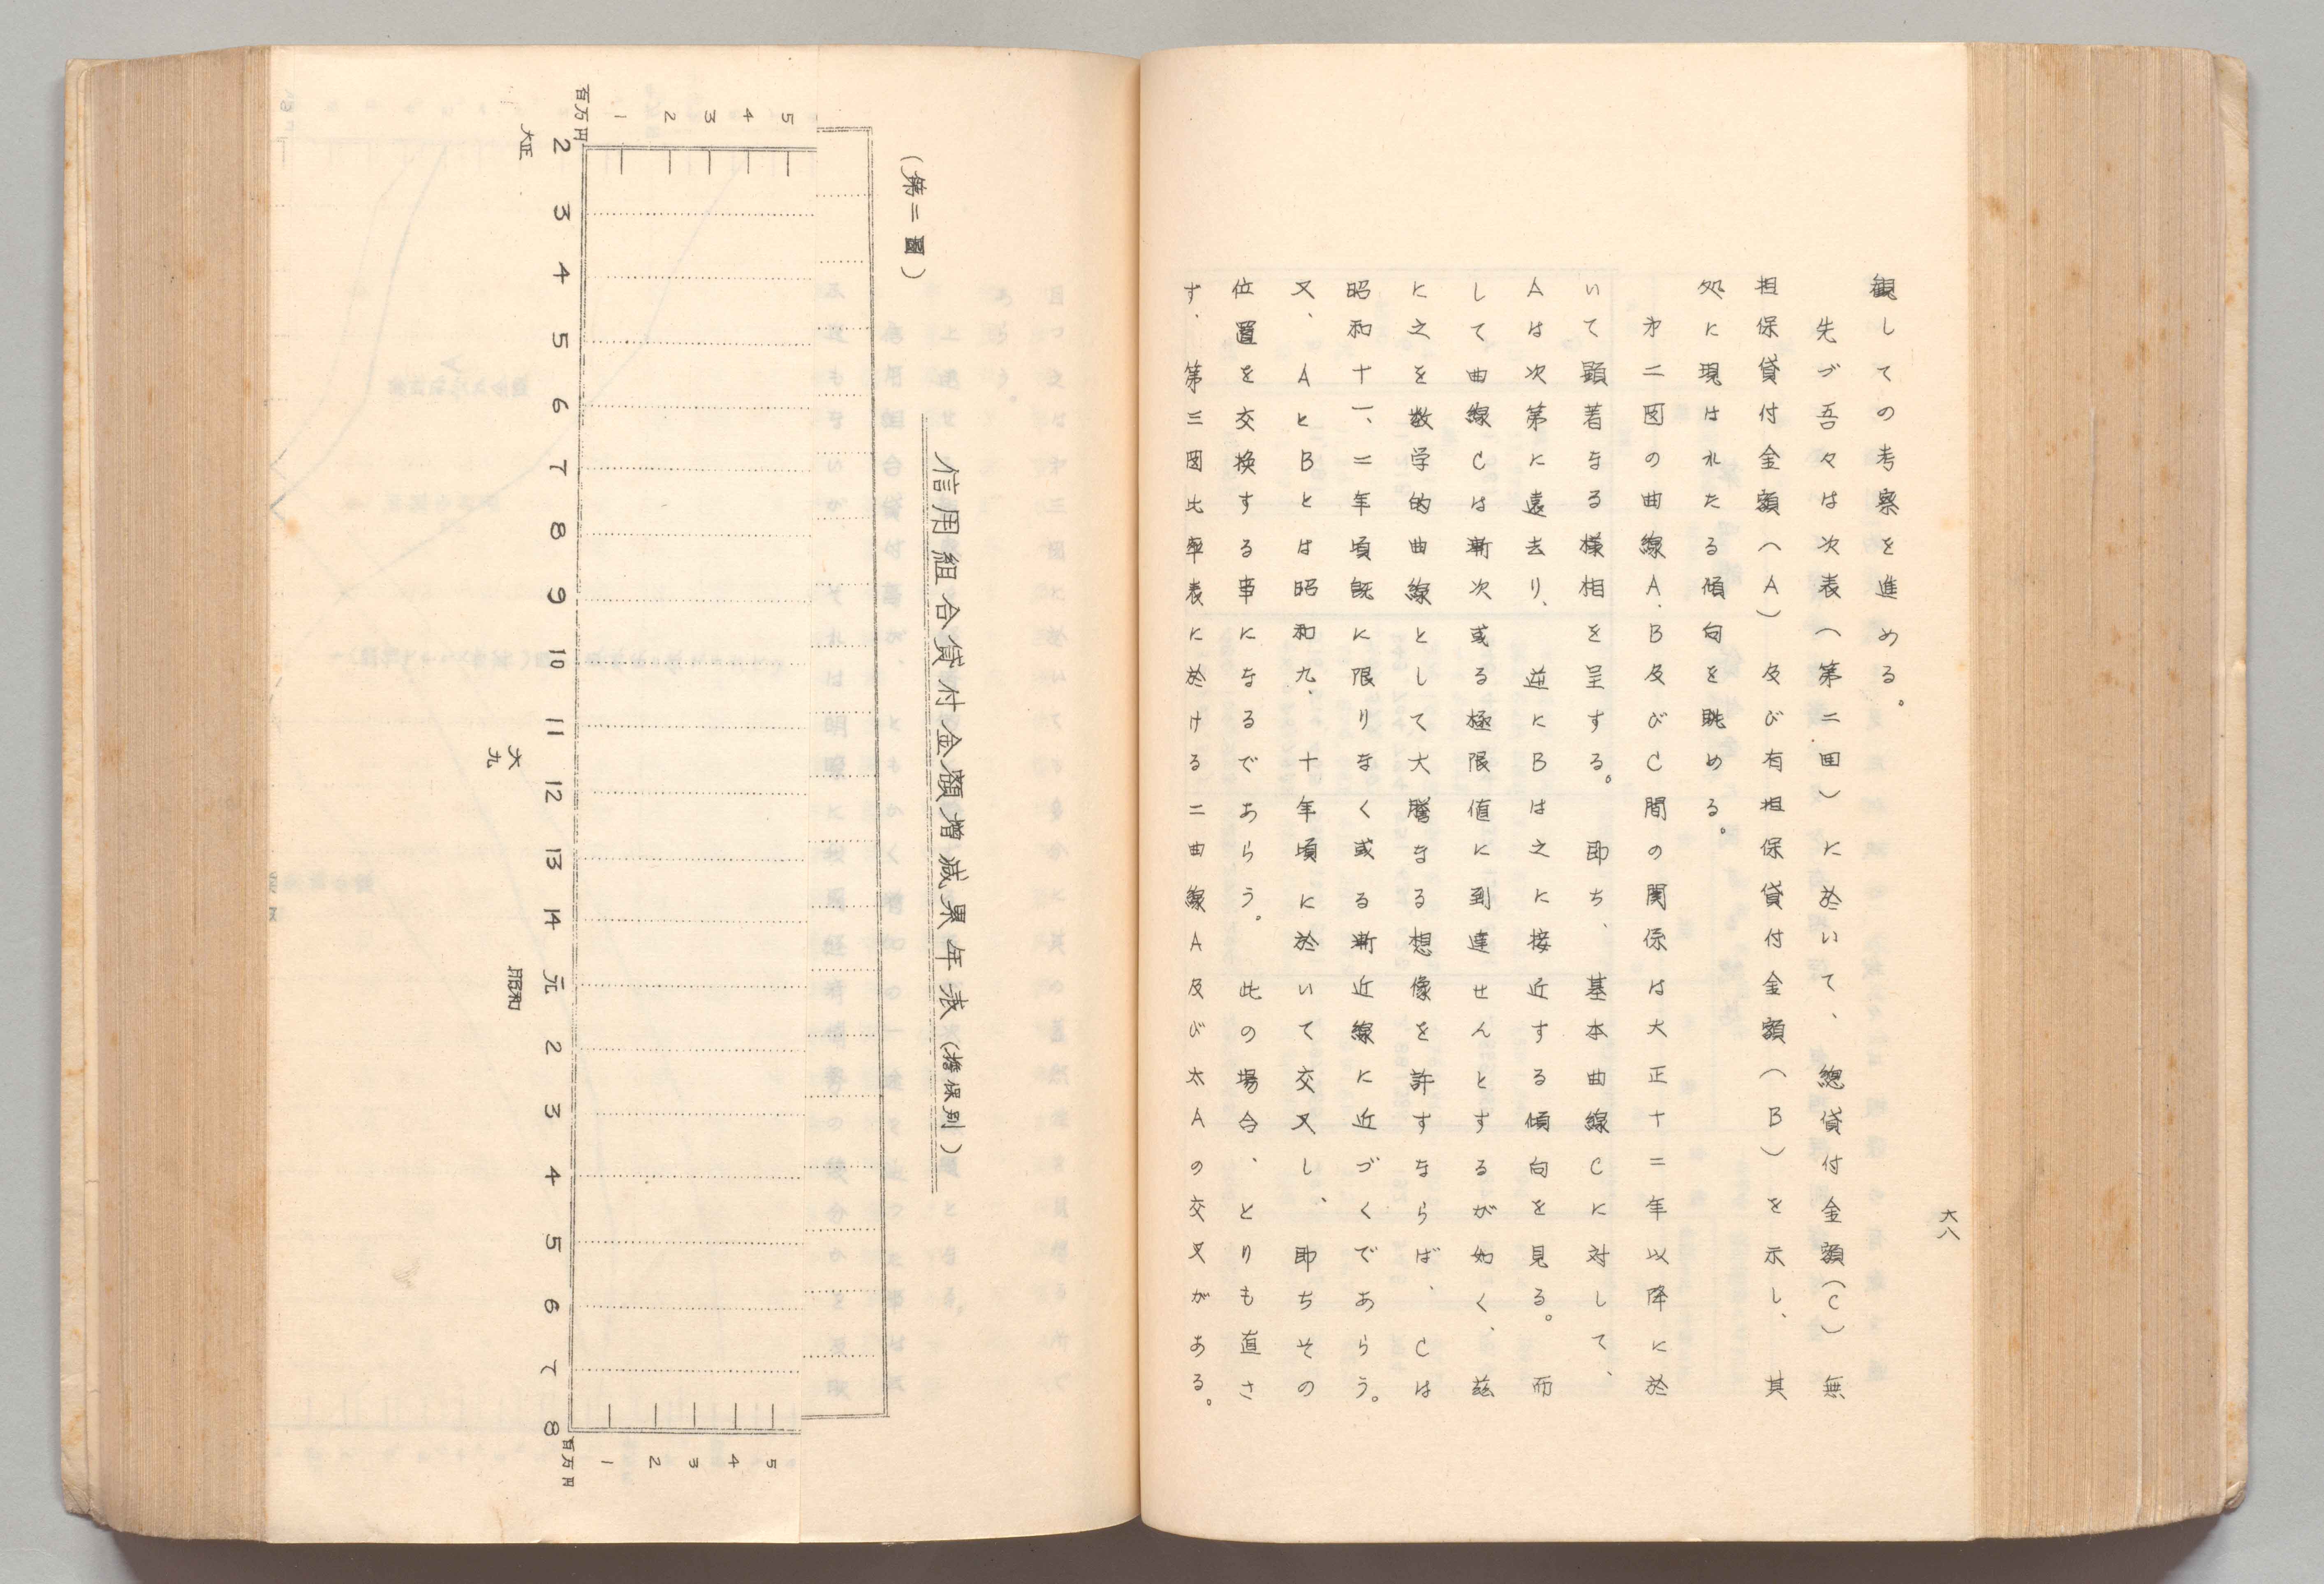 観しての考察を進める。
先づ吾々は次表（第二図）に於いて、総貸付金額（C）無
担保貸付金額（A）及び有担保貸付金額（B）を示し、其
処に現はれたる傾向を眺める。
才二図の曲線A.B及びC間の関係は大正十二年以降に於
いて顕著なる様相を呈する。即ち、基本曲線Cに対して、
Aは次第に遠去り、逆にBは之に接近する傾向を見る。而
して曲線Cは漸次或る極限値に到達せんとするが如く、茲
に之を数学的曲線として大膽なる想像を許すならば、Cは
昭和十一、二年頃既に限りなく或る漸近線に近づくであらう。
又、AとBとは昭和九、十年頃に於いて交又し、即ちその
位置を交換する事になるであらう。此の場合、とりも直さ
ず、第三図比率表に於ける二曲線A及び太Aの交叉がある。
六八
（第二圖）
信用組合貸付金額増減累年表（擔保別）
百万円 1 2 3 4 5
大正
2 3 4 5 6 7 8 9 10 11 12 13 14 元 2 3 4 5 6 7 8
大九
昭和
百万円 1 2 3 4 5